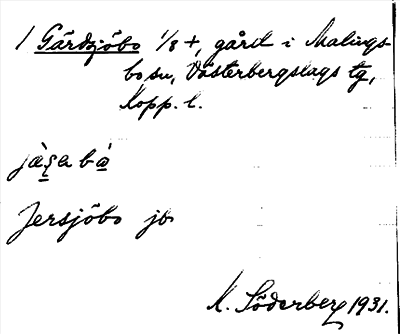 1 Gärdsjöbo 1/8 +, gård i Malings-
bo sn, Västerbergslags tg,
Kopp. l.
Jersjöbo jb
K. Söderberg 1931.